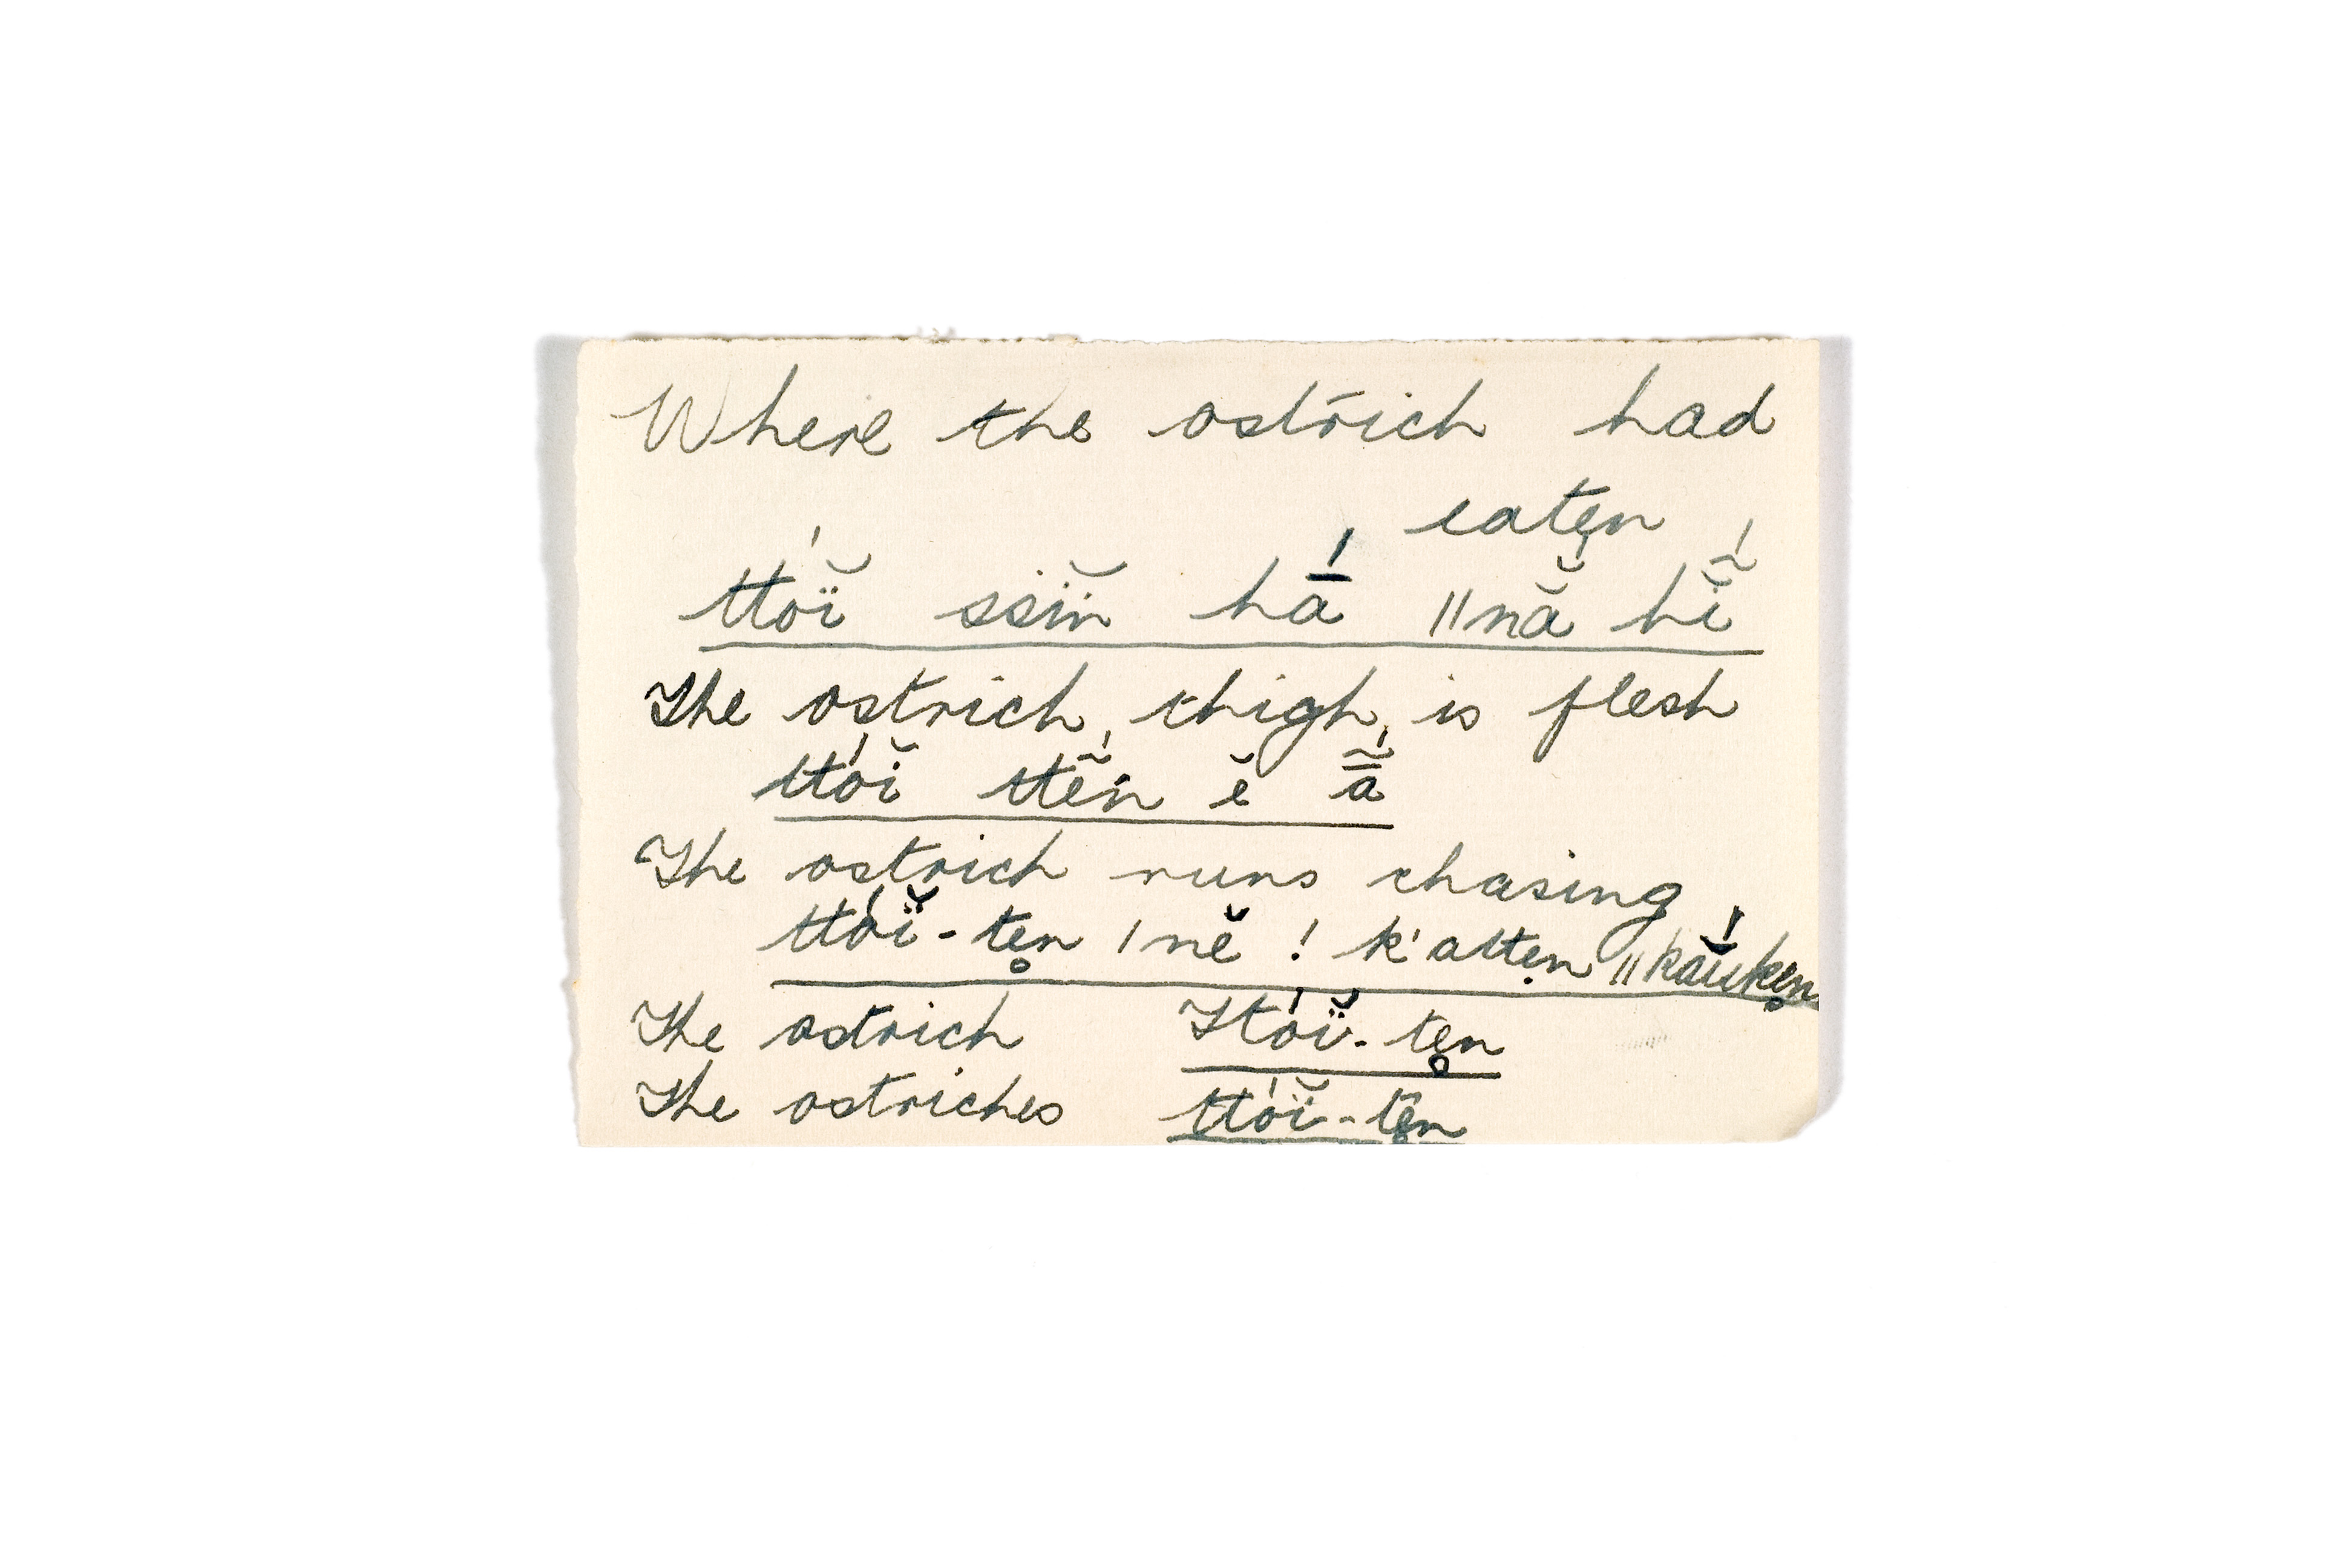 Where the ostrich had
eaten
ttóï̆ ssïn̆ hā́ ǁnắ hĭ̃́
The ostrich thigh is flesh
ttóĭ ttḗn ĕ ā̃́
The ostrich runs chasing
ttóï̆-ten̥ ǀnĕ ! k'atten̥ ǁkắŭken̥
The ostrich Ttóï̆-ten̥
The ostriches ttóï̆-ten̥